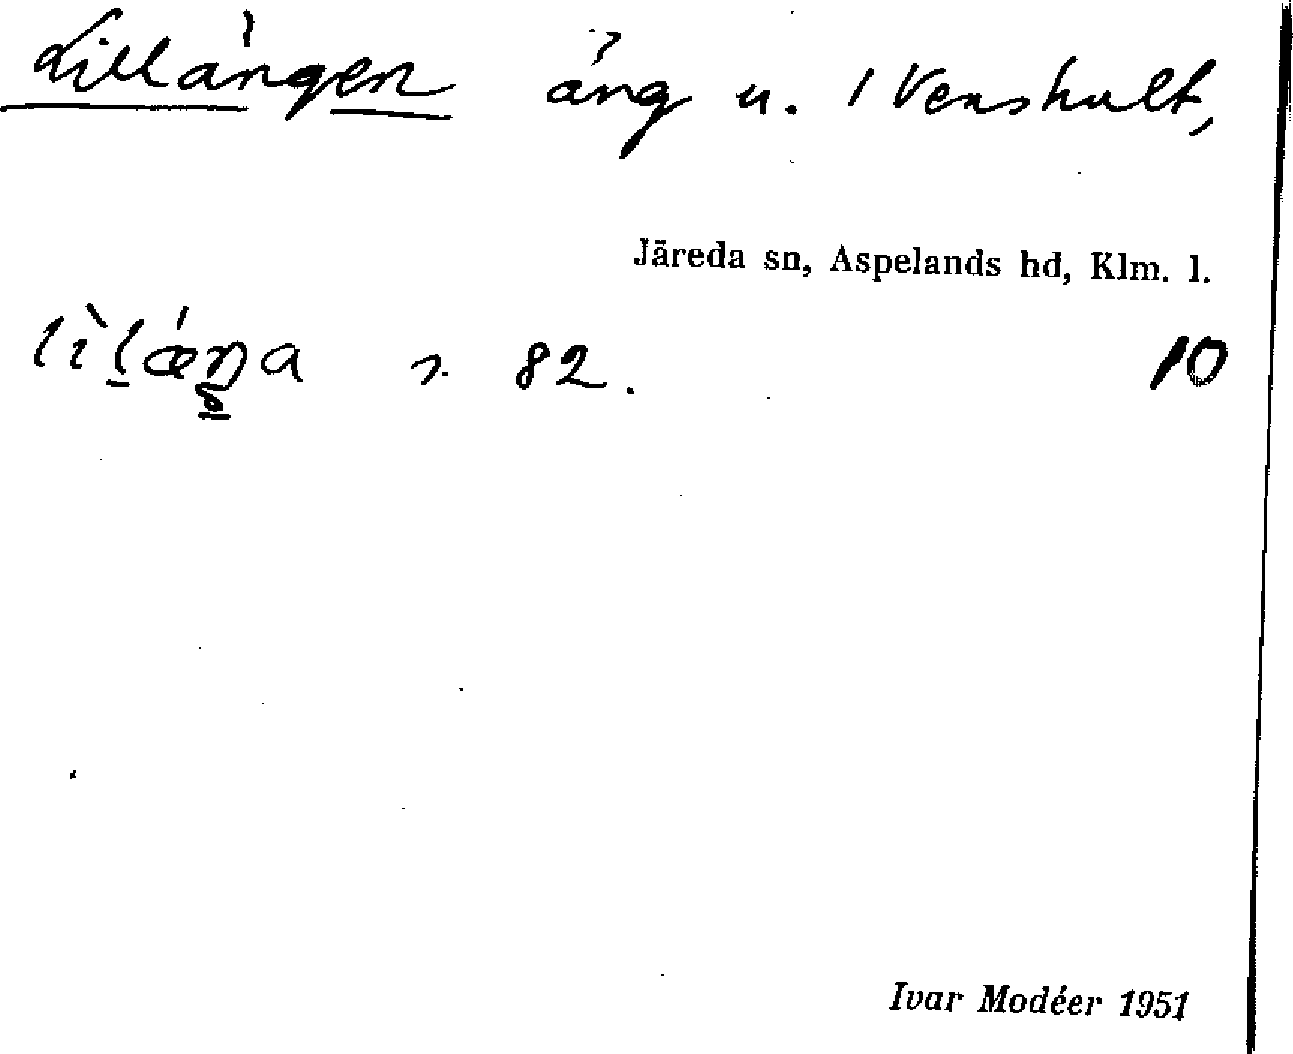 Lillängen äng u. 1 Venshult,
Järeda sn, Aspelands hd, Klm. l.
82. 10
Ivar Modéer 1951